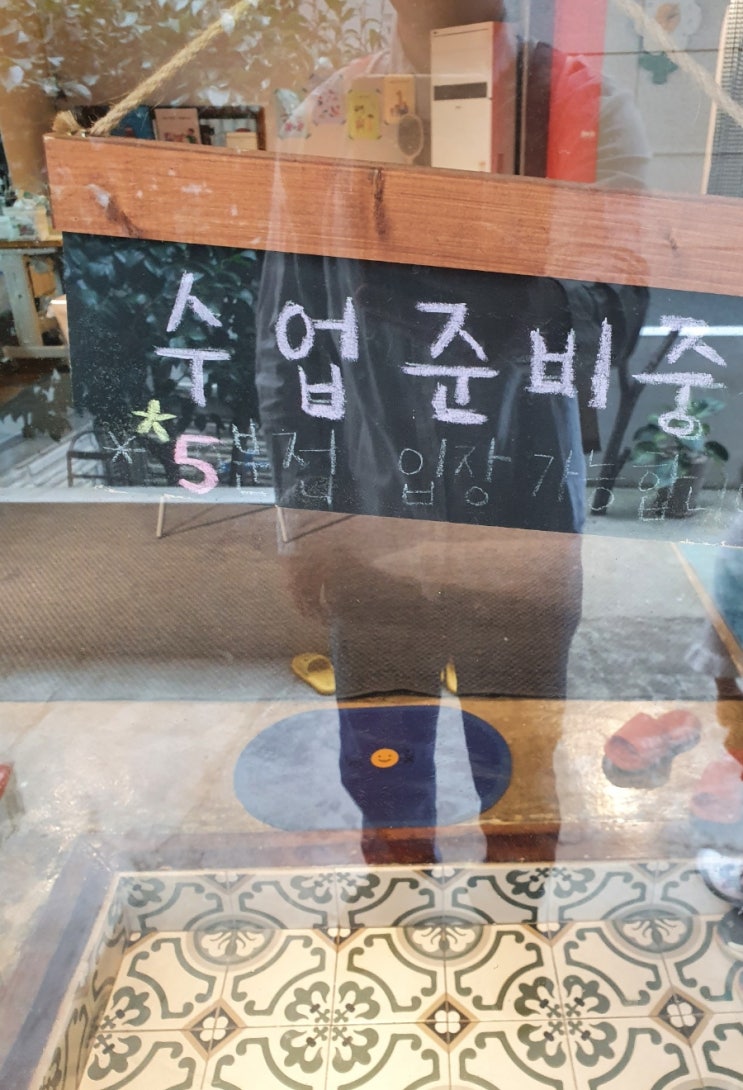 수업준비중
* *5분전 입장 가능합니다